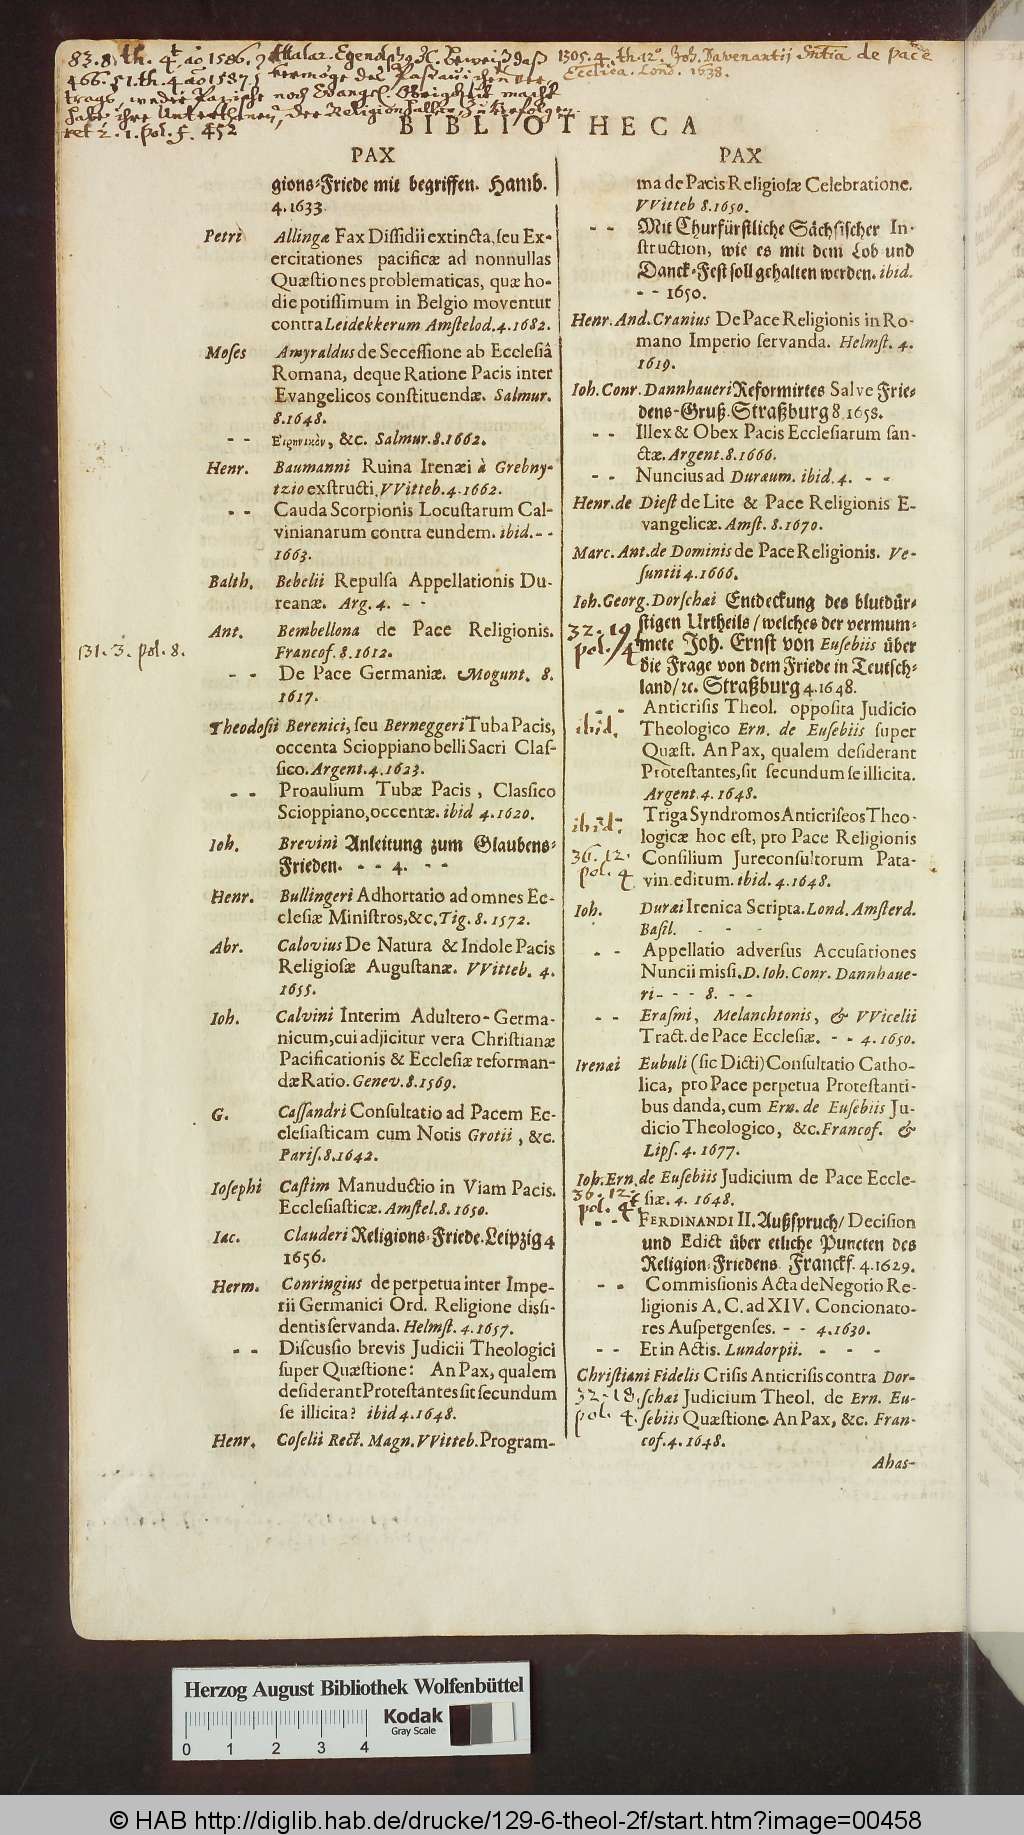 83.8. th. 4t. ao 1586.
466. 51. th. 4. ao 1587
1305. 4. th. 12o. Joh. Davenantij Sntia de pace
Ecclica. Lond. 1638.
ret 2. 1. pol. f. 452
BIBLIOTHECA
PAX
gions-Friede mit begriffen. Hamb.
4. 1633.
Petri Allingæ Fax Dissidii extincta, seu Ex-
ercitationes pacificæ ad nonnullas
Quæstiones problematicas, quæ ho-
die potissimum in Belgio moventur
contra Leidekkerum Amstelod. 4. 1682.
Moses Amyraldus de Secessione ab Ecclesiâ
Romana, deque Ratione Pacis inter
Evangelicos constituendæ. Salmur.
8. 1648.
- - Ειρηνικὸν, &c. Salmur. 8. 1662.
Henr. Baumanni Ruina Irenæi à Grebny-
tzio exstructi, VVitteb. 4. 1662.
- - Cauda Scorpionis Locustarum Cal-
vinianarum contra eundem. ibid. - -
1663.
Balth. Bebelii Repulsa Appellationis Du-
reanæ. Arg. 4. - -
Ant. Bembellona de Pace Religionis.
Francof. 8. 1612.
131. 3. pol. 8.
- - De Pace Germaniæ. Mogunt. 8.
1617.
Theodosii Berenici, seu Berneggeri Tuba Pacis,
occenta Scioppiano belli Sacri Clas-
sico. Argent. 4. 1623.
- - Proaulium Tubæ Pacis, Classico
Scioppiano, occentæ. ibid 4. 1620.
Ioh. Brevini Anleitung zum Glaubens-
Frieden. - - 4. - -
Henr. Bullingeri Adhortatio ad omnes Ec-
clesiæ Ministros, &c. Tig. 8. 1572.
Abr. Calovius De Natura & Indole Pacis
Religiosæ Augustanæ. VVitteb. 4.
1655.
Ioh. Calvini Interim Adultero-Germa-
nicum, cui adjicitur vera Christianæ
Pacificationis & Ecclesiæ reforman-
dæ Ratio. Genev. 8. 1569.
G. Cassandri Consultatio ad Pacem Ec-
clesiasticam cum Notis Grotii, &c.
Paris. 8. 1642.
Iosephi Castim Manuductio in Viam Pacis.
Ecclesiasticæ. Amstel. 8. 1650.
Iac. Clauderi Religions-Friede. Leipzig 4
1656.
Herm. Conringius de perpetua inter Impe-
rii Germanici Ord. Religione dissi-
dentis servanda. Helmst. 4. 1657.
- - Discussio brevis Judicii Theologici
super Quæstione: An Pax, qualem
desiderant Protestantes sit secundum
se illicita? ibid 4. 1648.
Henr. Coselii Rect. Magn. VVitteb. Program-
PAX
ma de Pacis Religiosæ Celebratione.
VVitteb 8. 1650.
- - Mit Churfürstliche Sächsischer In-
struction, wie es mit dem Lob und
Danck-Fest soll gehalten werden. ibid.
- - 1650.
Henr. And. Cranius De Pace Religionis in Ro-
mano Imperio servanda. Helmst. 4.
1619.
Ioh. Conr. Dannhaueri Reformirtes Salve Frie-
dens-Gruß. Straßburg 8. 1658.
- - Illex & Obex Pacis Ecclesiarum san-
ctæ. Argent. 8. 1666.
- - Nuncius ad Duræum. ibid. 4. - -
Henr. de Diest de Lite & Pace Religionis E-
vangelicæ. Amst. 8. 1670.
Marc. Ant. de Dominis de Pace Religionis. Ve-
suntii 4. 1666.
Ioh. Georg. Dorschai Entdeckung des blutdür-
stigen Urtheils / welches der vermum-
32. 19
pol. 4
mete Joh. Ernst von Eusebiis über
die Frage von dem Friede in Teutsch-
land / ꝛc. Straßburg 4. 1648.
- - Anticrisis Theol. opposita Judicio
ibid.
Theologico Ern. de Eusebiis super
Quæst. An Pax, qualem desiderant
Protestantes, sit secundum se illicita.
Argent. 4. 1648.
- - Triga Syndromos Anticriseos Theo-
ibid.
logicæ hoc est, pro Pace Religionis
36. 12.
pol. 4
Consilium Jureconsultorum Pata-
vin. editum. ibid. 4. 1648.
Ioh. Duræi Irenica Scripta. Lond. Amsterd.
Basil. - - -
- - Appellatio adversus Accusationes
Nuncii missi. D. Ioh. Conr. Dannhaue-
ri - - - 8. - -
- - Erasmi, Melanchtonis, & VVicelii
Tract. de Pace Ecclesiæ. - - 4. 1650.
Irenæi Eubuli (sic Dicti) Consultatio Catho-
lica, pro Pace perpetua Protestanti-
bus danda, cum Ern. de Eusebiis Ju-
dicio Theologico, &c. Francof. &
Lips. 4. 1677.
Ioh. Ern. de Eusebiis Judicium de Pace Eccle-
36. 12.
pol. 4
siæ. 4. 1648.
- - FERDINANDI II. Außspruch / Decision
und Edict über etliche Puncten des
Religion-Friedens Franckf. 4. 1629.
- - Commissionis Acta de Negotio Re-
ligionis A. C. ad XIV. Concionato-
res Auspergenses. - - 4. 1630.
- - Et in Actis. Lundorpii. - - -
Christiani Fidelis Crisis Anticrisis contra Dor-
32. 18.
pol. 4.
schai Judicium Theol. de Ern. Eu-
sebiis Quæstione. An Pax, &c. Fran-
cof. 4. 1648.
Ahas-
Herzog August Bibliothek Wolfenbüttel
Kodak
Gray Scale
0 1 2 3 4
© HAB http://diglib.hab.de/drucke/129-6-theol-2f/start.htm?image=00458